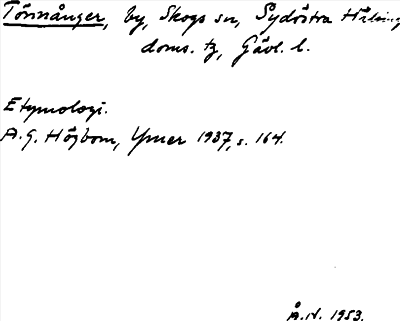 Törnånger, by, Skogs sn, Sydöstra Hälsing
doms. tg, Gävl. l.
Etymologi.
A.G. Högbom, Ymer 1937, s. 164.
Å.N. 1953.